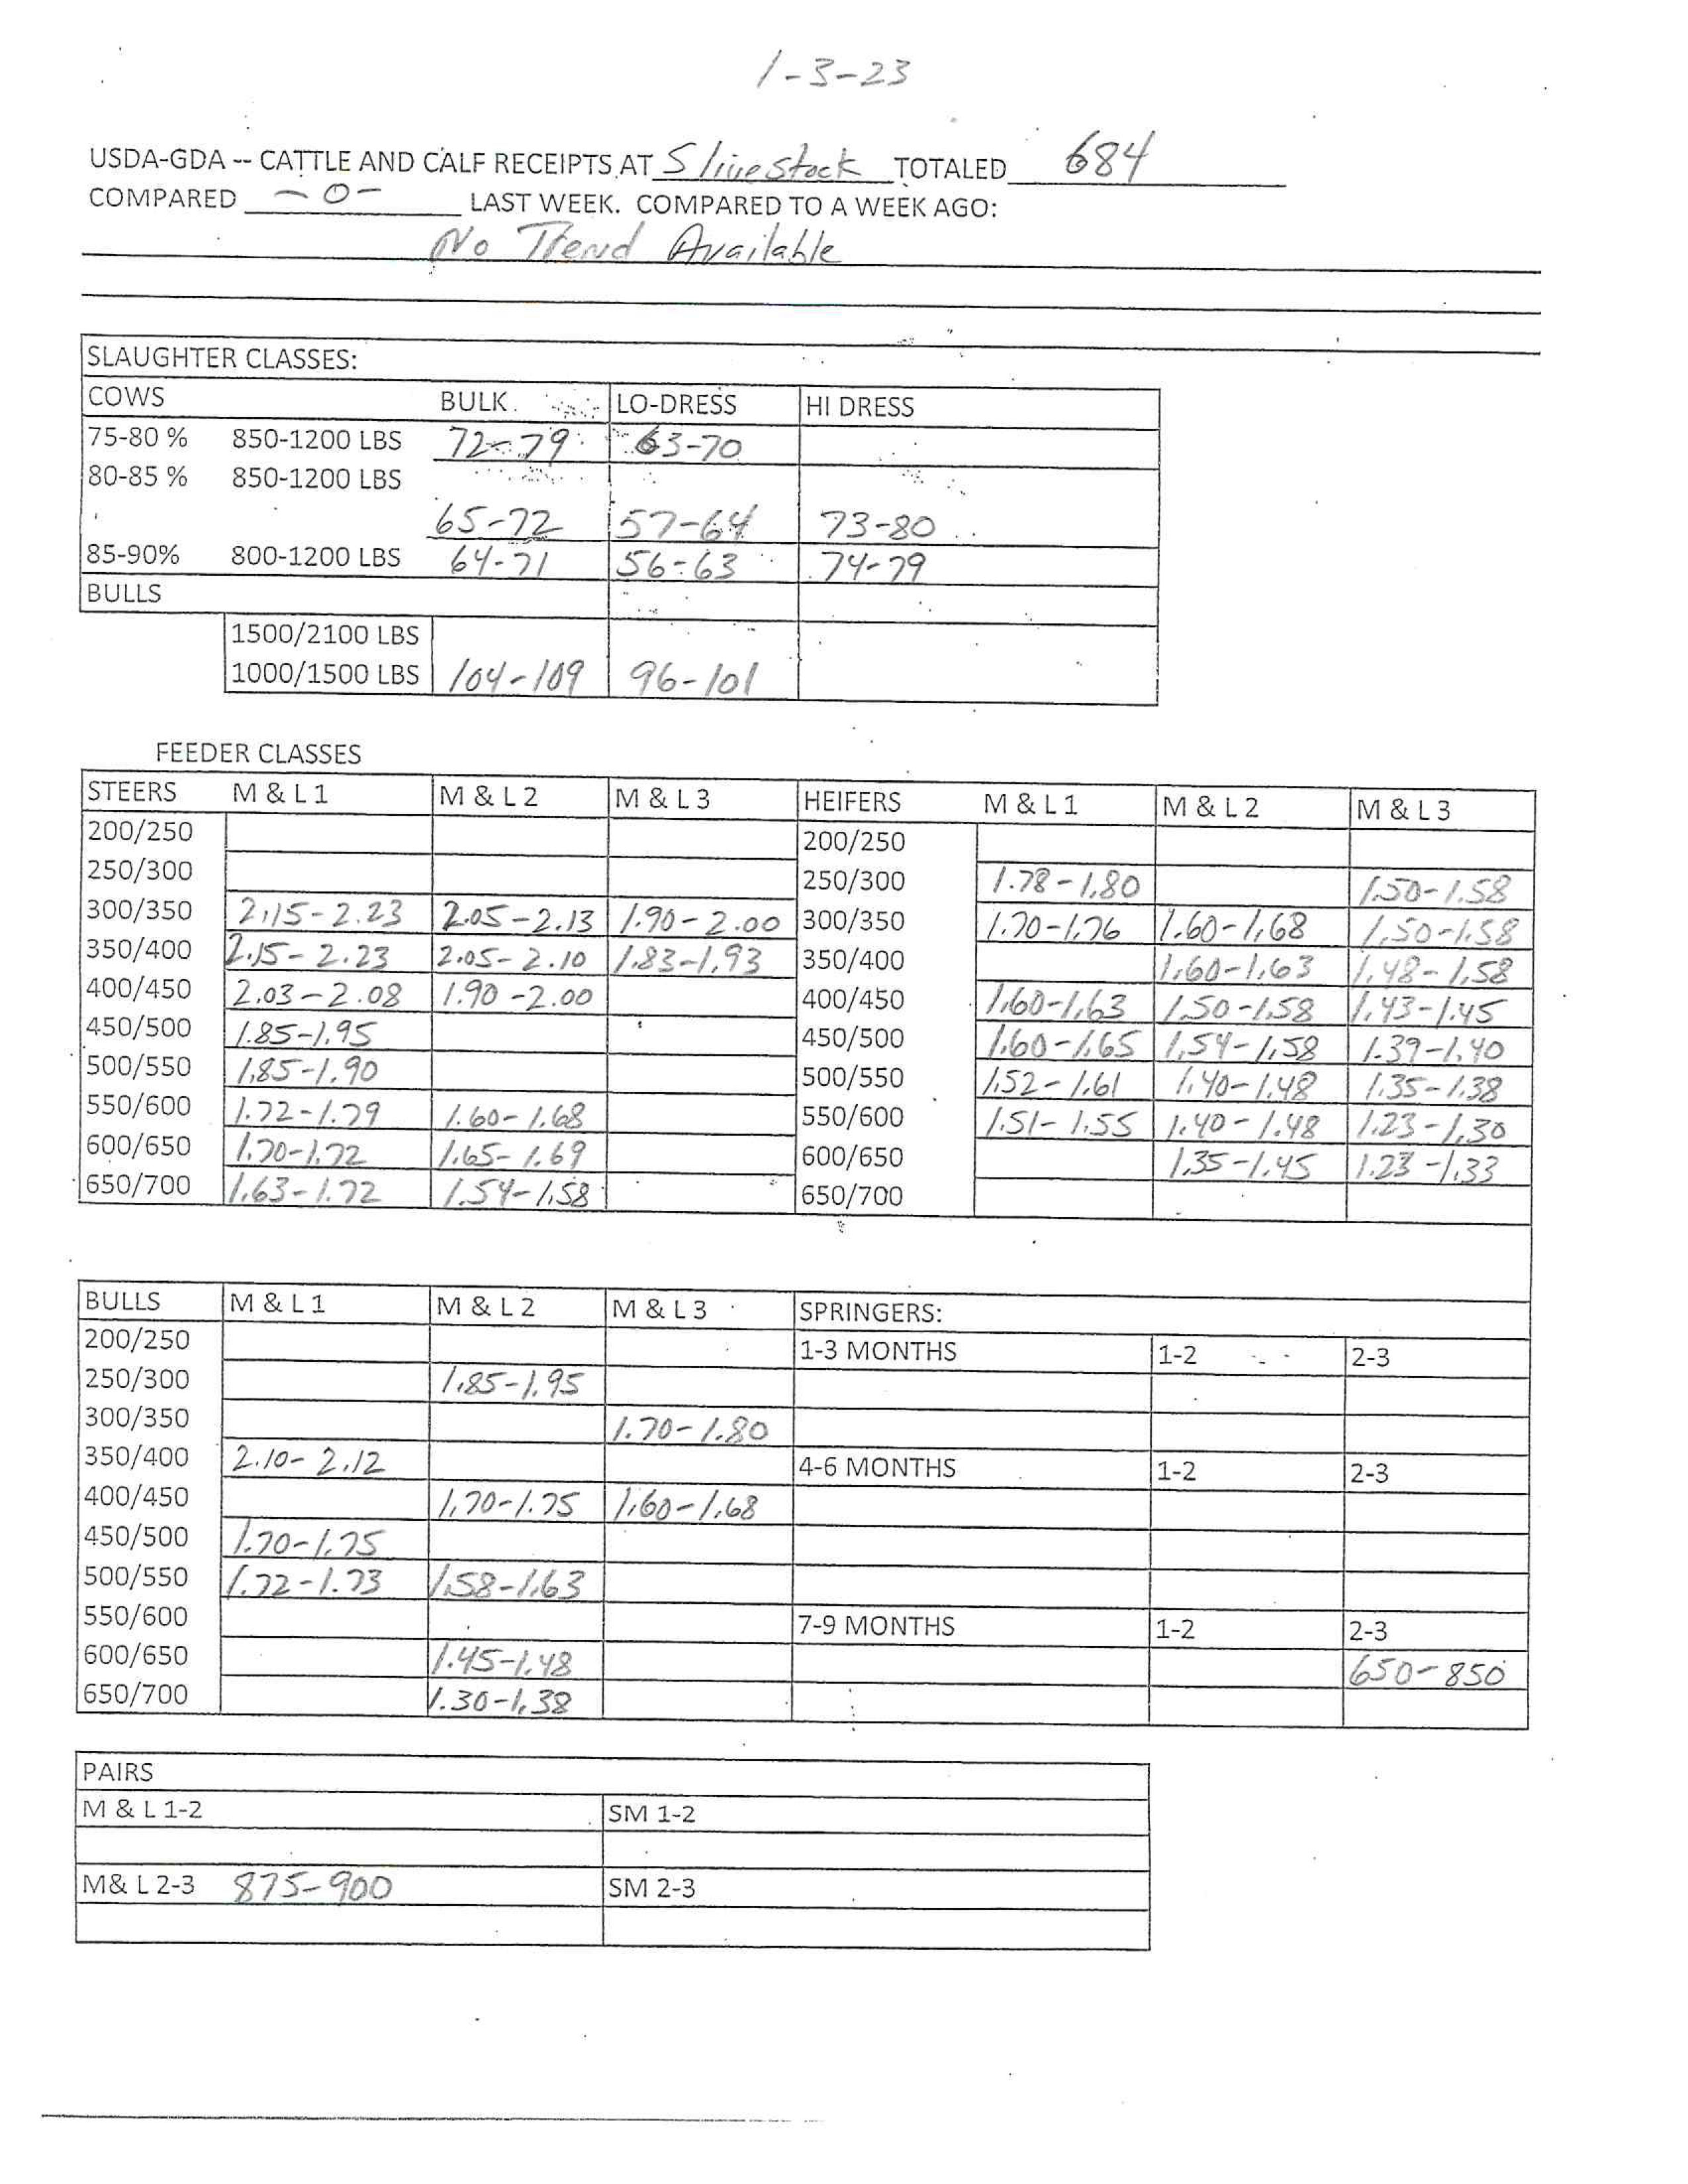 1-3-23
USDA-GDA -- CATTLE AND CALF RECEIPTS AT S livestock TOTALED 684
COMPARED -0- LAST WEEK. COMPARED TO A WEEK AGO:
No Trend Available
SLAUGHTER CLASSES:
COWS BULK LO-DRESS HI DRESS
75-80 % 850-1200 LBS 72-79 63-70
80-85 % 850-1200 LBS
65-72 57-64 73-80
85-90% 800-1200 LBS 64-71 56-63 74-79
BULLS
1500/2100 LBS
1000/1500 LBS 104-109 96-101
FEEDER CLASSES
STEERS M & L 1 M & L 2 M & L 3 HEIFERS M & L 1 M & L 2 M & L 3
200/250 200/250
250/300 250/300 1.78-1.80 1.50-1.58
300/350 2.15-2.23 2.05-2.13 1.90-2.00 300/350 1.70-1.76 1.60-1.68 1.50-1.58
350/400 2.15-2.23 2.05-2.10 1.83-1.93 350/400 1.60-1.63 1.48-1.58
400/450 2.03-2.08 1.90-2.00 400/450 1.60-1.63 1.50-1.58 1.43-1.45
450/500 1.85-1.95 450/500 1.60-1.65 1.54-1.58 1.39-1.40
500/550 1.85-1.90 500/550 1.52-1.61 1.40-1.48 1.35-1.38
550/600 1.72-1.79 1.60-1.68 550/600 1.51-1.55 1.40-1.48 1.23-1.30
600/650 1.70-1.72 1.65-1.69 600/650 1.35-1.45 1.23-1.33
650/700 1.63-1.72 1.54-1.58 650/700
BULLS M & L 1 M & L 2 M & L 3 SPRINGERS:
200/250 1-3 MONTHS 1-2 2-3
250/300 1.85-1.95
300/350 1.70-1.80
350/400 2.10-2.12 4-6 MONTHS 1-2 2-3
400/450 1.70-1.75 1.60-1.68
450/500 1.70-1.75
500/550 1.72-1.73 1.58-1.63
550/600 7-9 MONTHS 1-2 2-3
600/650 1.45-1.48 650-850
650/700 1.30-1.38
PAIRS
M & L 1-2 SM 1-2
M& L 2-3 875-900 SM 2-3